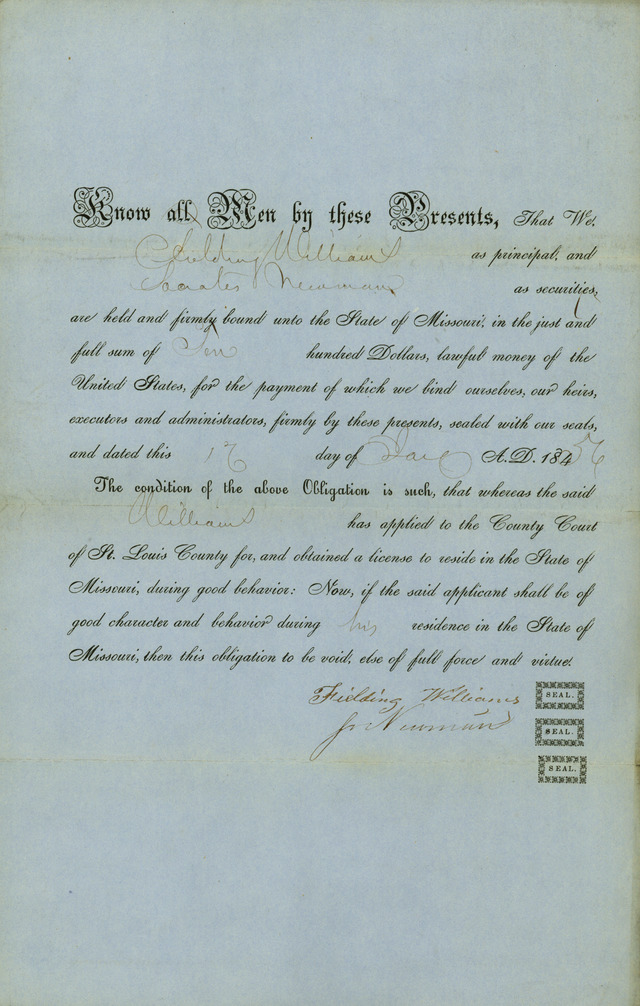 Know all Men by these Presents, That We,
Fielding Williams as principal, and
Socrates Newman as securities,
are held and firmly bound unto the State of Missouri, in the just and
full sum of hundred Dollars, lawful money of the
United States, for the payment of which we bind ourselves, our heirs,
executors and administrators, firmly by these presents, sealed with our seals,
and dated this day of A.D. 184
The condition of the above Obligation is such, that whereas the said
Williams has applied to the County Court
of St. Louis County for, and obtained a license to reside in the State of
Missouri, during good behavior: Now, if the said applicant shall be of
good character and behavior during his residence in the State of
Missouri, then this obligation to be void, else of full force and virtue.
Fielding Williams SEAL.
Newman SEAL.
SEAL.